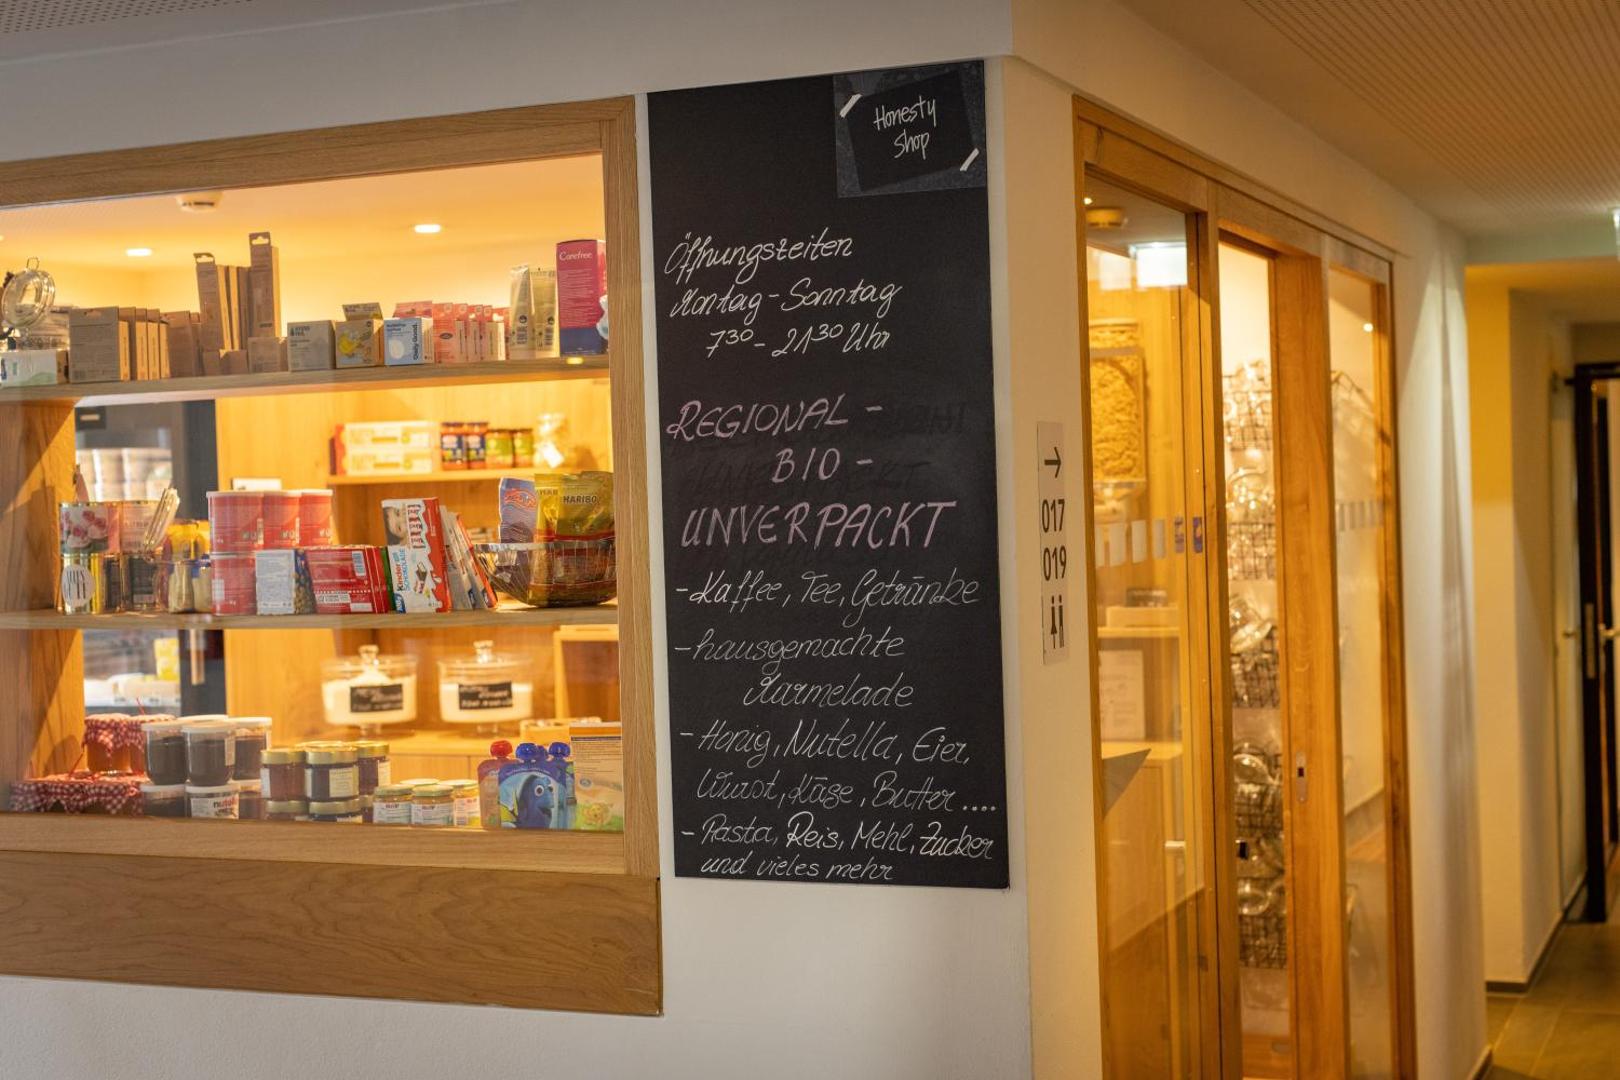 Honesty
Shop
Öffnungszeiten
Montag - Sonntag
7³⁰ - 21³⁰ Uhr
REGIONAL -
BIO -
UNVERPACKT
- Kaffee, Tee, Getränke
- hausgemachte
Marmelade
- Honig, Nutella, Eier,
Wurst, Käse, Butter ....
- Pasta, Reis, Mehl, Zucker
und vieles mehr
→
017
019
Carefree
HARIBO
Kinder
nutella